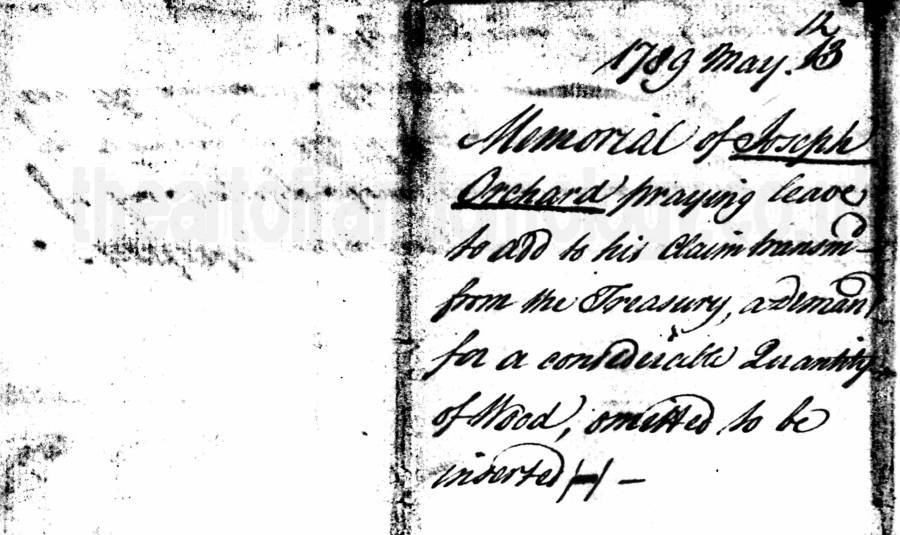 12
1789 May. 13
Memorial of Joseph
Orchard praying leave
to add to his Claim transm.d
from the Treasury, a Demand
for a considerable Quantity
of Wood, omitted to be
inserted H —